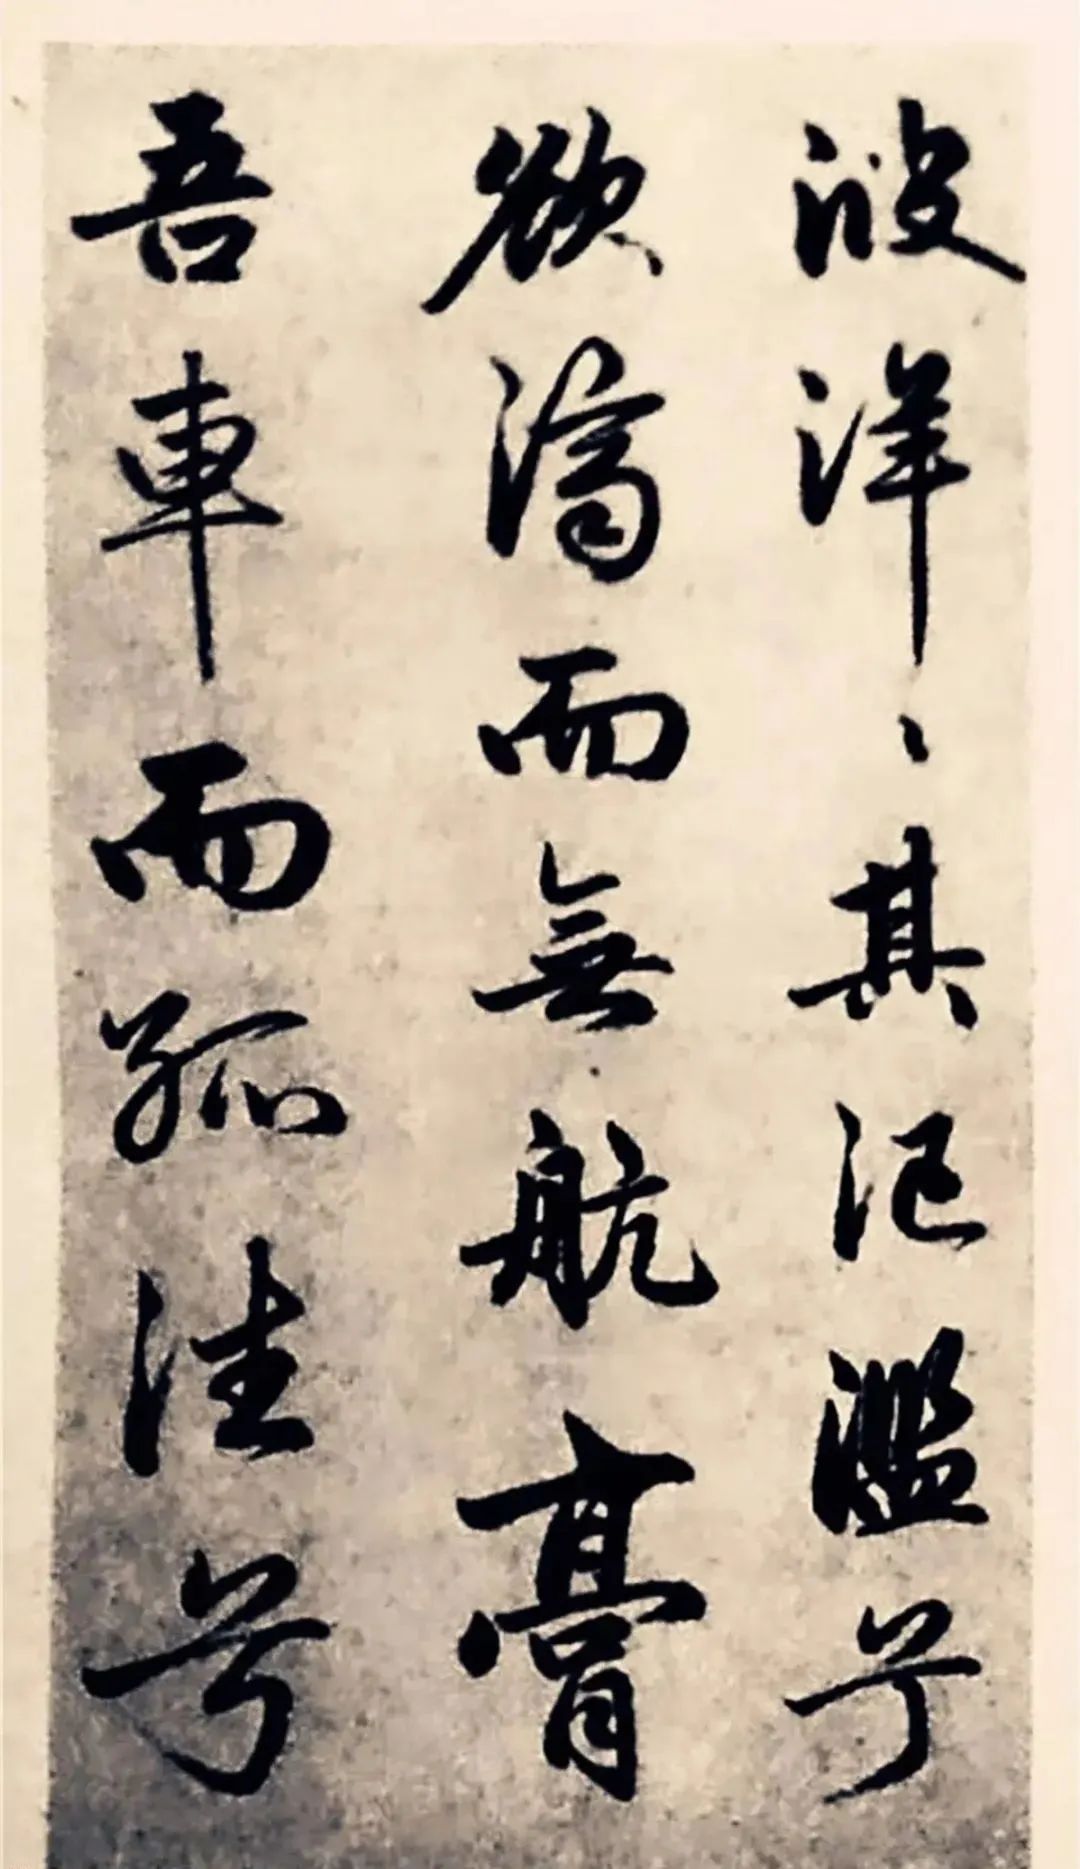 波洋〻其氾濫兮
欲濟而無航膏
吾車而孤往兮